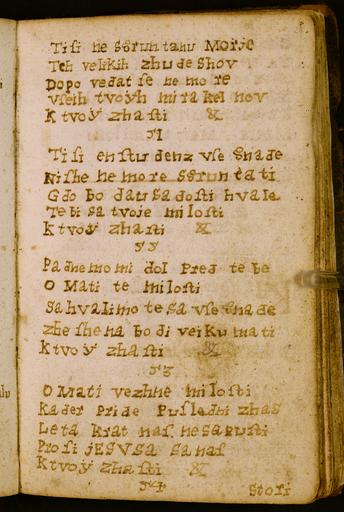 Ti si ne sgruntanu Morje
Teh velikih zhudeshov
Dopovedat se nemore
vseih tvoyh mirakelnov
K tvoÿ zhasti &
31
Ti si en studenz vse gnade
Nishe ne more sgruntati
Gdo bo dau sadosti hvale
Tebi sa tvoje milosti
k tvoÿ zhasti &
32
Padnemo mi dol Pred tebe
O Mati te milosti
Sahvalimo te sa vse gnade
zheshena bodi veiku mati
k tvoÿ zhasti &
33
O Mati vezhne milosti
kader pride Pusledni zhas
Leta krat nas ne sapusti
Prosi jESVSa sa nas
K tvoÿ zhasti &
34
Stosi